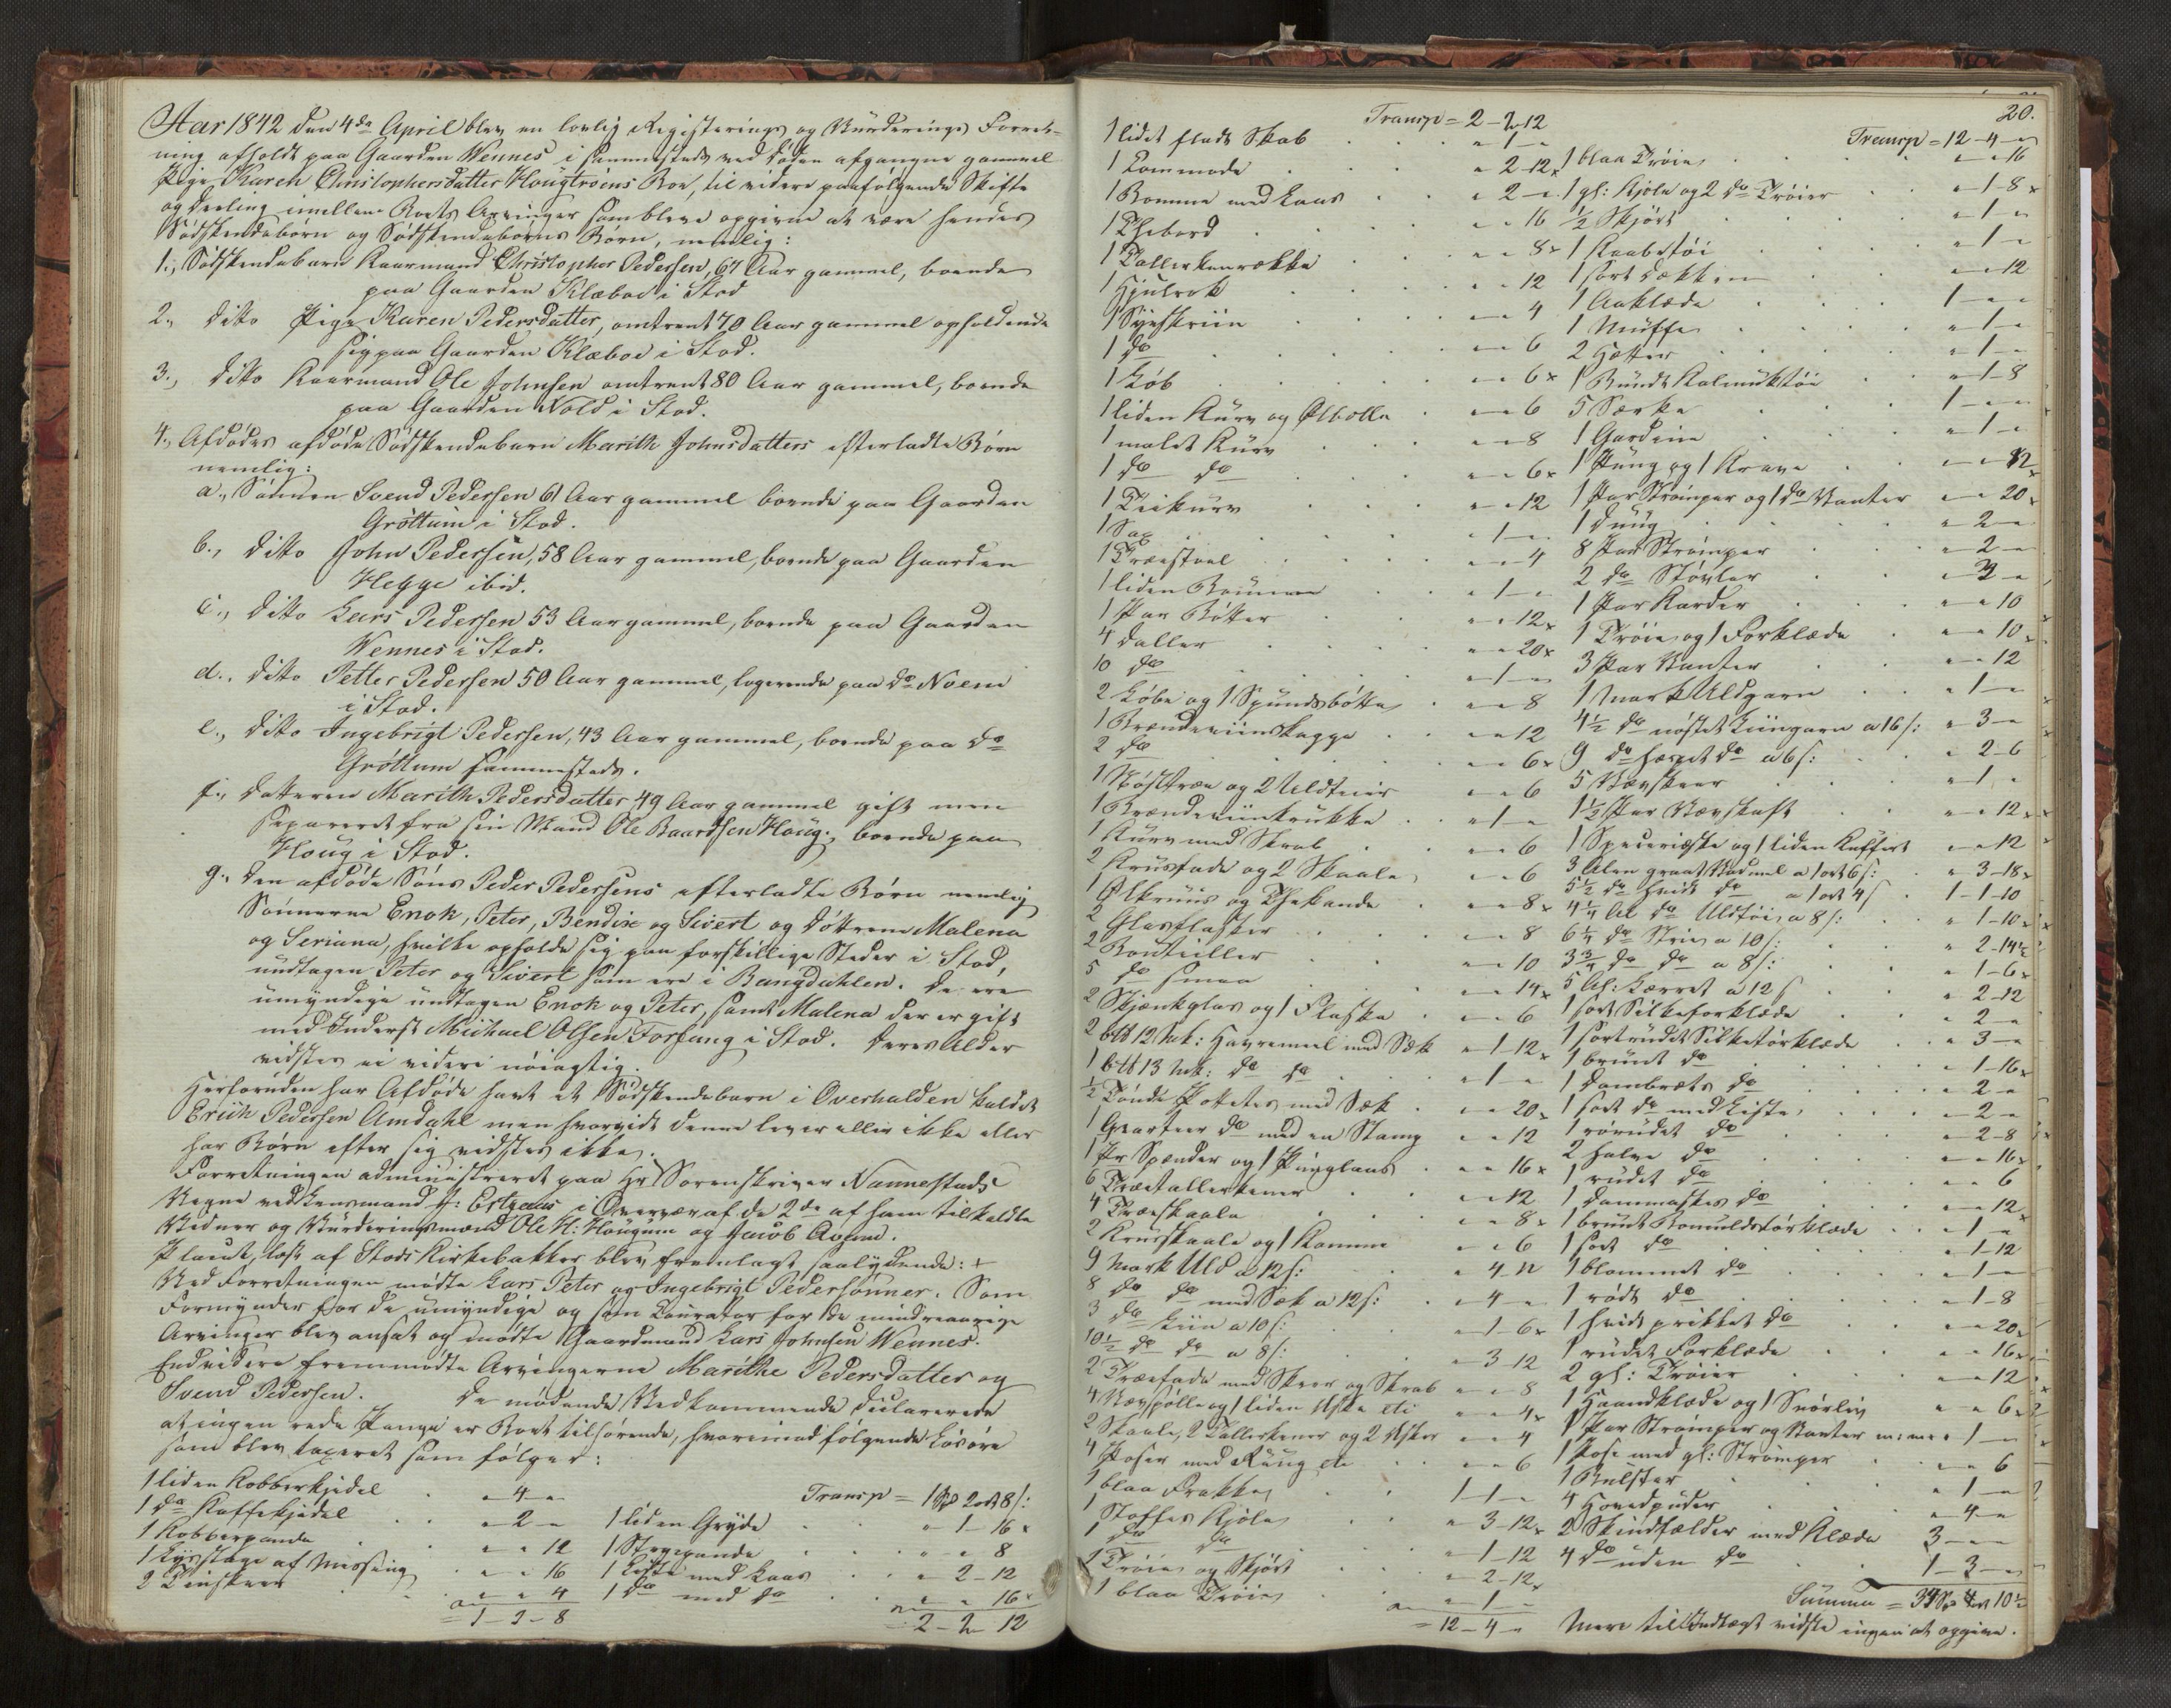 Aar 1842 den 4de April blev en lovlig Registerings og Vurderings Forret-
ning afholdt paa Gaarden Wennes i sammesteds ved Døden afgangne gammel
Pige Karen Christophersdatter Hougtrøens Boe, til videre paafølgende Skifte
og Deeling imellem Boets Arvinger som bleve opgivne at være hendes
Sødskendebørn og Sødskendebørns Børn, nemlig:
1., Sødskendebarn Kaarmand Christopher Pedersen, 67 Aar gammel, boende
paa Gaarden Klæboe i Stod
2., ditto Pige Karen Pedersdatter, omtrent 70 Aar gammel opholdende
sig paa Gaarden Klæboe i Stod.
3., ditto Kaarmand Ole Johnsen omtrent 80 Aar gammel, boende
paa Gaarden Nold i Stod.
4., Afdødes afdøde Sødskendebarn Marith Johnsdatters efterladte Børn
nemlig:
a., Sønnen Svend Pedersen 61 Aar gammel boende paa Gaarden
Grøttum i Stod.
b., ditto John Pedersen, 58 Aar gammel, boende paa Gaarden
Hegge ibid.
c., ditto Lars Pedersen 53 Aar gammel, boende paa Gaarden
Wennes i Stod.
d., ditto Petter Pedersen 50 Aar gammel, logerende paa do Noem
i Stod.
e., ditto Ingebrigt Pedersen, 43 Aar gammel, boende paa do
Grøttum sammesteds.
f., datteren Marith Pedersdatter 49 Aar gammel gift men
separeret fra sin Mand Ole Baardsen Houg, boende paa
Houg i Stod.
g., den afdøde Søns Peder Pedersens efterladte Børn nemlig
Sønnerne Enok, Peter, Bendix og Sivert og døttrene Malena
og Seriana, hvilke opholde sig paa forskillige Steder i Stod,
undtagen Peter og Sivert som ere i Bangdahlen. de ere
umyndige undtagen Enok og Peter, samt Malena der er gift
med Inderst Michael Olsen Forfang i Stod. deres Alder
vidstes ei videre nøiagtig.
Herforuden har Afdøde havt et Sødskendebarn i Overhalden kaldet
Erich Pedersen Amdahl men hvorvidt denne lever eller ikke eller
har Børn efter sig vidstes ikke.
Forretningen administreret paa Hr Sorenskriver Nannestads
Vegne ved Lensmand J: Estgaus i Overvær af de 2de af ham tilkaldte
Vidner og Vurderingsmænd Ole H: Hougum og Jacob
Placat, læst af Stods Kirkebakker blev fremlagt saalydende: +
Ved Forretningen mødte Lars, Peter og Ingebrigt Pedersønner. Som
Formynder for de umyndige og som Courator for de mindreaarige
Arvinger blev ansat og mødte Gaardmand Lars Johnsen Wennes.
Endvidere fremmødte Arvingerne Marithe Pedersdatter og
Svend Pedersen. de mødende Vedkommende declarerede
at ingen rede Penge er Boet tilhørende, hvorimod følgende Løsøre
som blev taxeret som følger:
1 liden Kobberkjedel . „ 4 „
1 do Kaffekjedel . . „ 2 „
1 Kobberpande . . „ „ 12
1 Lysstage af Messing . „ „ 16
2 Tinskeer . . „ „ 4
= 1-2-8
Transp = 1 Spd 2 ort 8 s:
1 liden Gryde . . „ 1-16 x
1 Stegepande . . „ „ 8
1 Kiste med Laas . . „ 2-12
1 do med do . . „ „ 16 x
= 2-2-12
20.
Transp = 2-2-12
1 lidet fladt Skab . . „ 1 „
1 Commode . . „ 2-12 x
1 Bomme med Laas . . „ 2 „
1 Thebord . . „ „ 16
1 Tallerkenrække . . „ „ 8 x
1 Hjulrok . . „ „ 12
1 Syeskriin . . „ „ 4
1 do . . „ „ 6
1 Løb . . „ „ 6 x
1 liden Kurv og Ølbolle . „ „ 6
1 malet Kurv . . „ „ 8
1 do do . . „ „ 6 x
1 Teikurv . . „ „ 12
1 Sax . . „ 1 „
1 Træestoel . . „ „ 4
1 liden Bomme . . „ 1 „
1 Par Bøtter . . „ „ 12 x
4 Daller . . „ „ 20 x
10 do . . „ 1 „
2 Løbe og 1 Spundsbøtte . „ „ 8
1 Brændeviinskagge . . „ „ 12
2 do . . „ „ 6 x
1 og 2 . „ „ 6
1 Brændeviinkrukke . . „ 1 „
1 Kurv med Skrab . . „ „ 6
2 Kruusfade og 2 Skaale . „ „ 6
1 Ølkruus og Thekande . „ „ 8 x
2 Glasflasker . . „ „ 8
2 Bouteiller . . „ „ 10
5 do smaa . . „ „ 14 x
2 Skjænkglas og 1 Flaske . „ „ 6
2 12 Mk: Havremeel med Sæk „ 1-12 x
1 13 Mk: do do . „ 1 „
½ Tønde Potetes med Sæk . „ „ 20 x
1 Qvarteer do med en Stamp „ „ 12
1 Pr Spænder og 1 Punglaas . „ „ 16 x
6 Trætallerkener . . „ „ 12
4 Træskaale . . „ „ 8 x
2 Kruusskaale og 1 Komme „ „ 6
9 Mark Uld a 12 s: . „ 4-12
8 do do med Sæk a 12 s: . „ 4 „
3 do Liin a 10 s: . . „ 1-6 x
10½ do do a 8 s: . . „ 3-12
2 Træefade med Skeer og Skrab „ „ 8
4 og 1 liden Æske etc „ „ 4 x
2 Skaale, 2 Tallerkener og 2 Æsker „ „ 4
4 Poser med Rüng etc . „ „ 6
1 blaa Frakke . . 1-1 „
1 Stoffes Kjole . . „ 3-12 x
1 do do . . „ 1-12
1 Trøie og Skjørt . . „ 2-12 x
1 blaa Trøie . . „ 1 „
= 12-4 „
Transp = 12-4 „
1 blaa Trøie . . „ „ 16
1 gl: Kjole og 2 do Trøier . . „ 1-8 x
½ Skjørt . . „ 1 „
1 Kaabetøi . . „ 1 „
1 sort dækken . . „ „ 12
1 Aaklæde . . 1 „ „
1 Muffe . . „ 1 „
2 Hætter . . „ 1 „
1 Bundt Kalmuktøi . . „ 1-8
5 Særke . . 1 „ „
1 Gardin . . „ 1 „
1 Pung og 1 Krave . . „ „ 12 x
1 Par Strømper og 1 do Vanter „ „ 20 x
1 Duug . . „ 2 „
8 Par Strømper . . „ 2 „
2 do Støvler . . „ 2 „
1 Par Karder . . „ „ 10
1 Trøie og 1 Forklæde . . „ „ 10 x
3 Par Vanter . . „ „ 12
1 Mark Uldgarn . . „ 1 „
4½ do nøstet Liingarn a 16 s: „ 3 „
9 do hæspet do a 6 s: . „ 2-6
5 Vævskeer . . „ 1 „
1½ Par Vævskaft . . „ „ 12 x
1 og 1 liden Kuffert „ „ 12
3 Alen graat Vadmel a 1 ort 6 s: „ 3-18 x
5½ do hvidt do a 1 ort 4 s 1-1-10
4¼ Al do Uldtøi a 8 s: . „ 1-10 x
6¼ do Strie a 10 s: . „ 2-14½
3¾ do do a 8 s: . . „ 1-6 x
5 Al: Lærret a 12 s . . „ 2-12
1 sort Silkeforklæde . . „ 2 „
1 sortrudet Silketørklæde . . „ 3 „
1 bruunt do . . „ 1-16 x
1 dambræts do . . „ 2 „
1 sort do med Liste . . „ 2 „
1 rørudet do . . „ 2-8
2 halve do . . „ „ 16 x
1 rudet do . . „ „ 6
1 dammaskes do . . „ „ 12 x
1 bruunt Bomuldstørklæde . . „ 1 „
1 sort do . . „ 1-12
1 blommet do . . „ 1 „
1 rødt do . . „ 1-8
1 hvidt prikket do . . „ „ 20 x
1 rudet Forklæde . . „ „ 16 x
2 gl: Trøier . . „ „ 12
1 Haandklæde og 1 Snørliv „ „ 6 x
1 Par Strømper og Vanter m: m: „ 1 „
1 Pose med gl: Strømper . „ „ 6
1 Bulster . . „ 1 „
4 Hovedpuder . . „ 4 „
2 Skindfælder med Klæde 3 „ „
4 do uden do . . 1-3 „
Summa = 34 Spd 4 ort 10½
Mere til Indtægt vidste ingen at opgive.